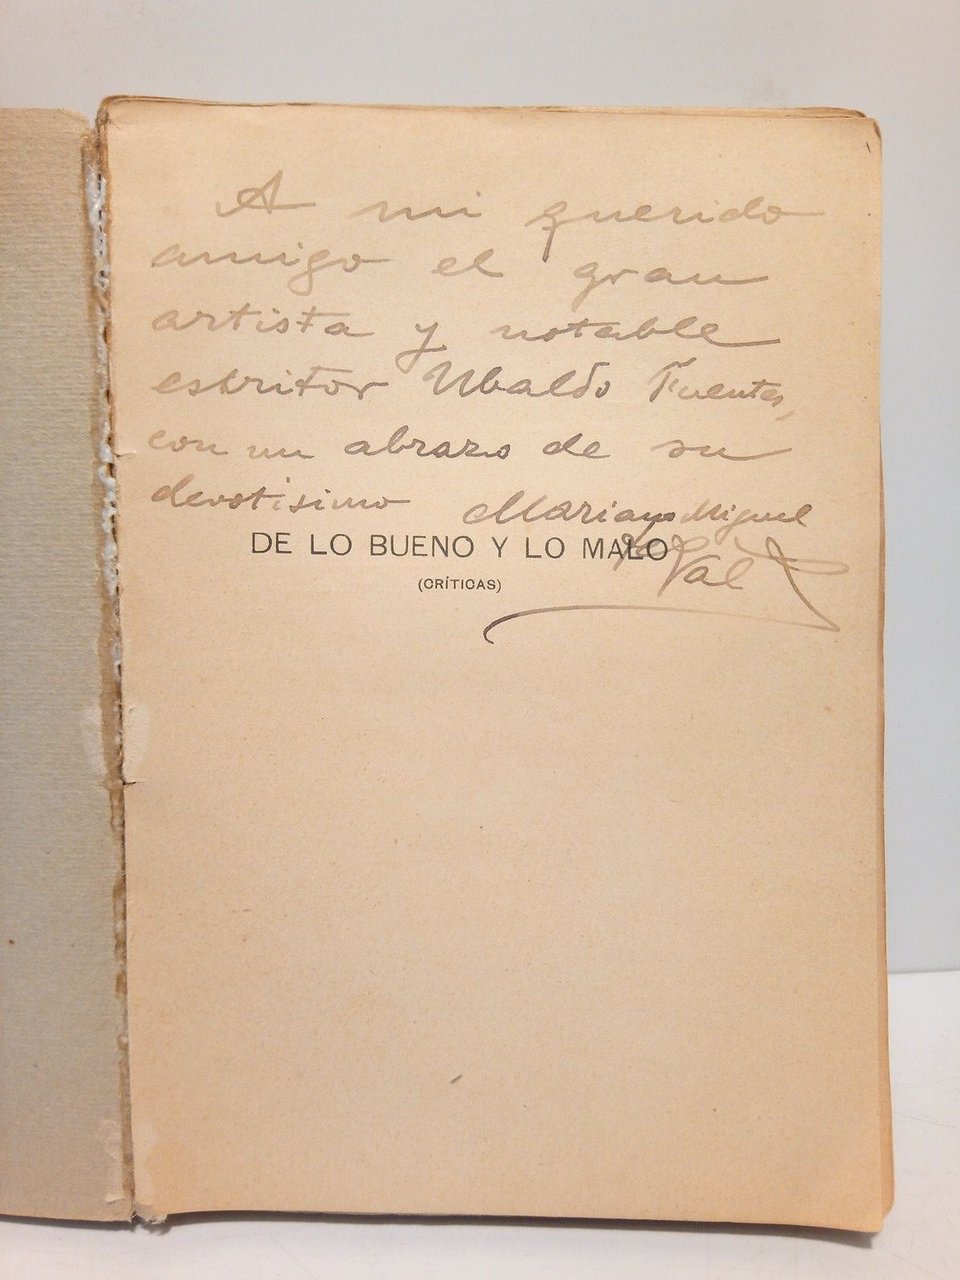 A mi querido
amigo el gran
artista y notable
escritor Ubaldo Fuentes,
con un abrazo de su
devotísimo Mariano Miguel
de Val
DE LO BUENO Y LO MALO
(CRÍTICAS)